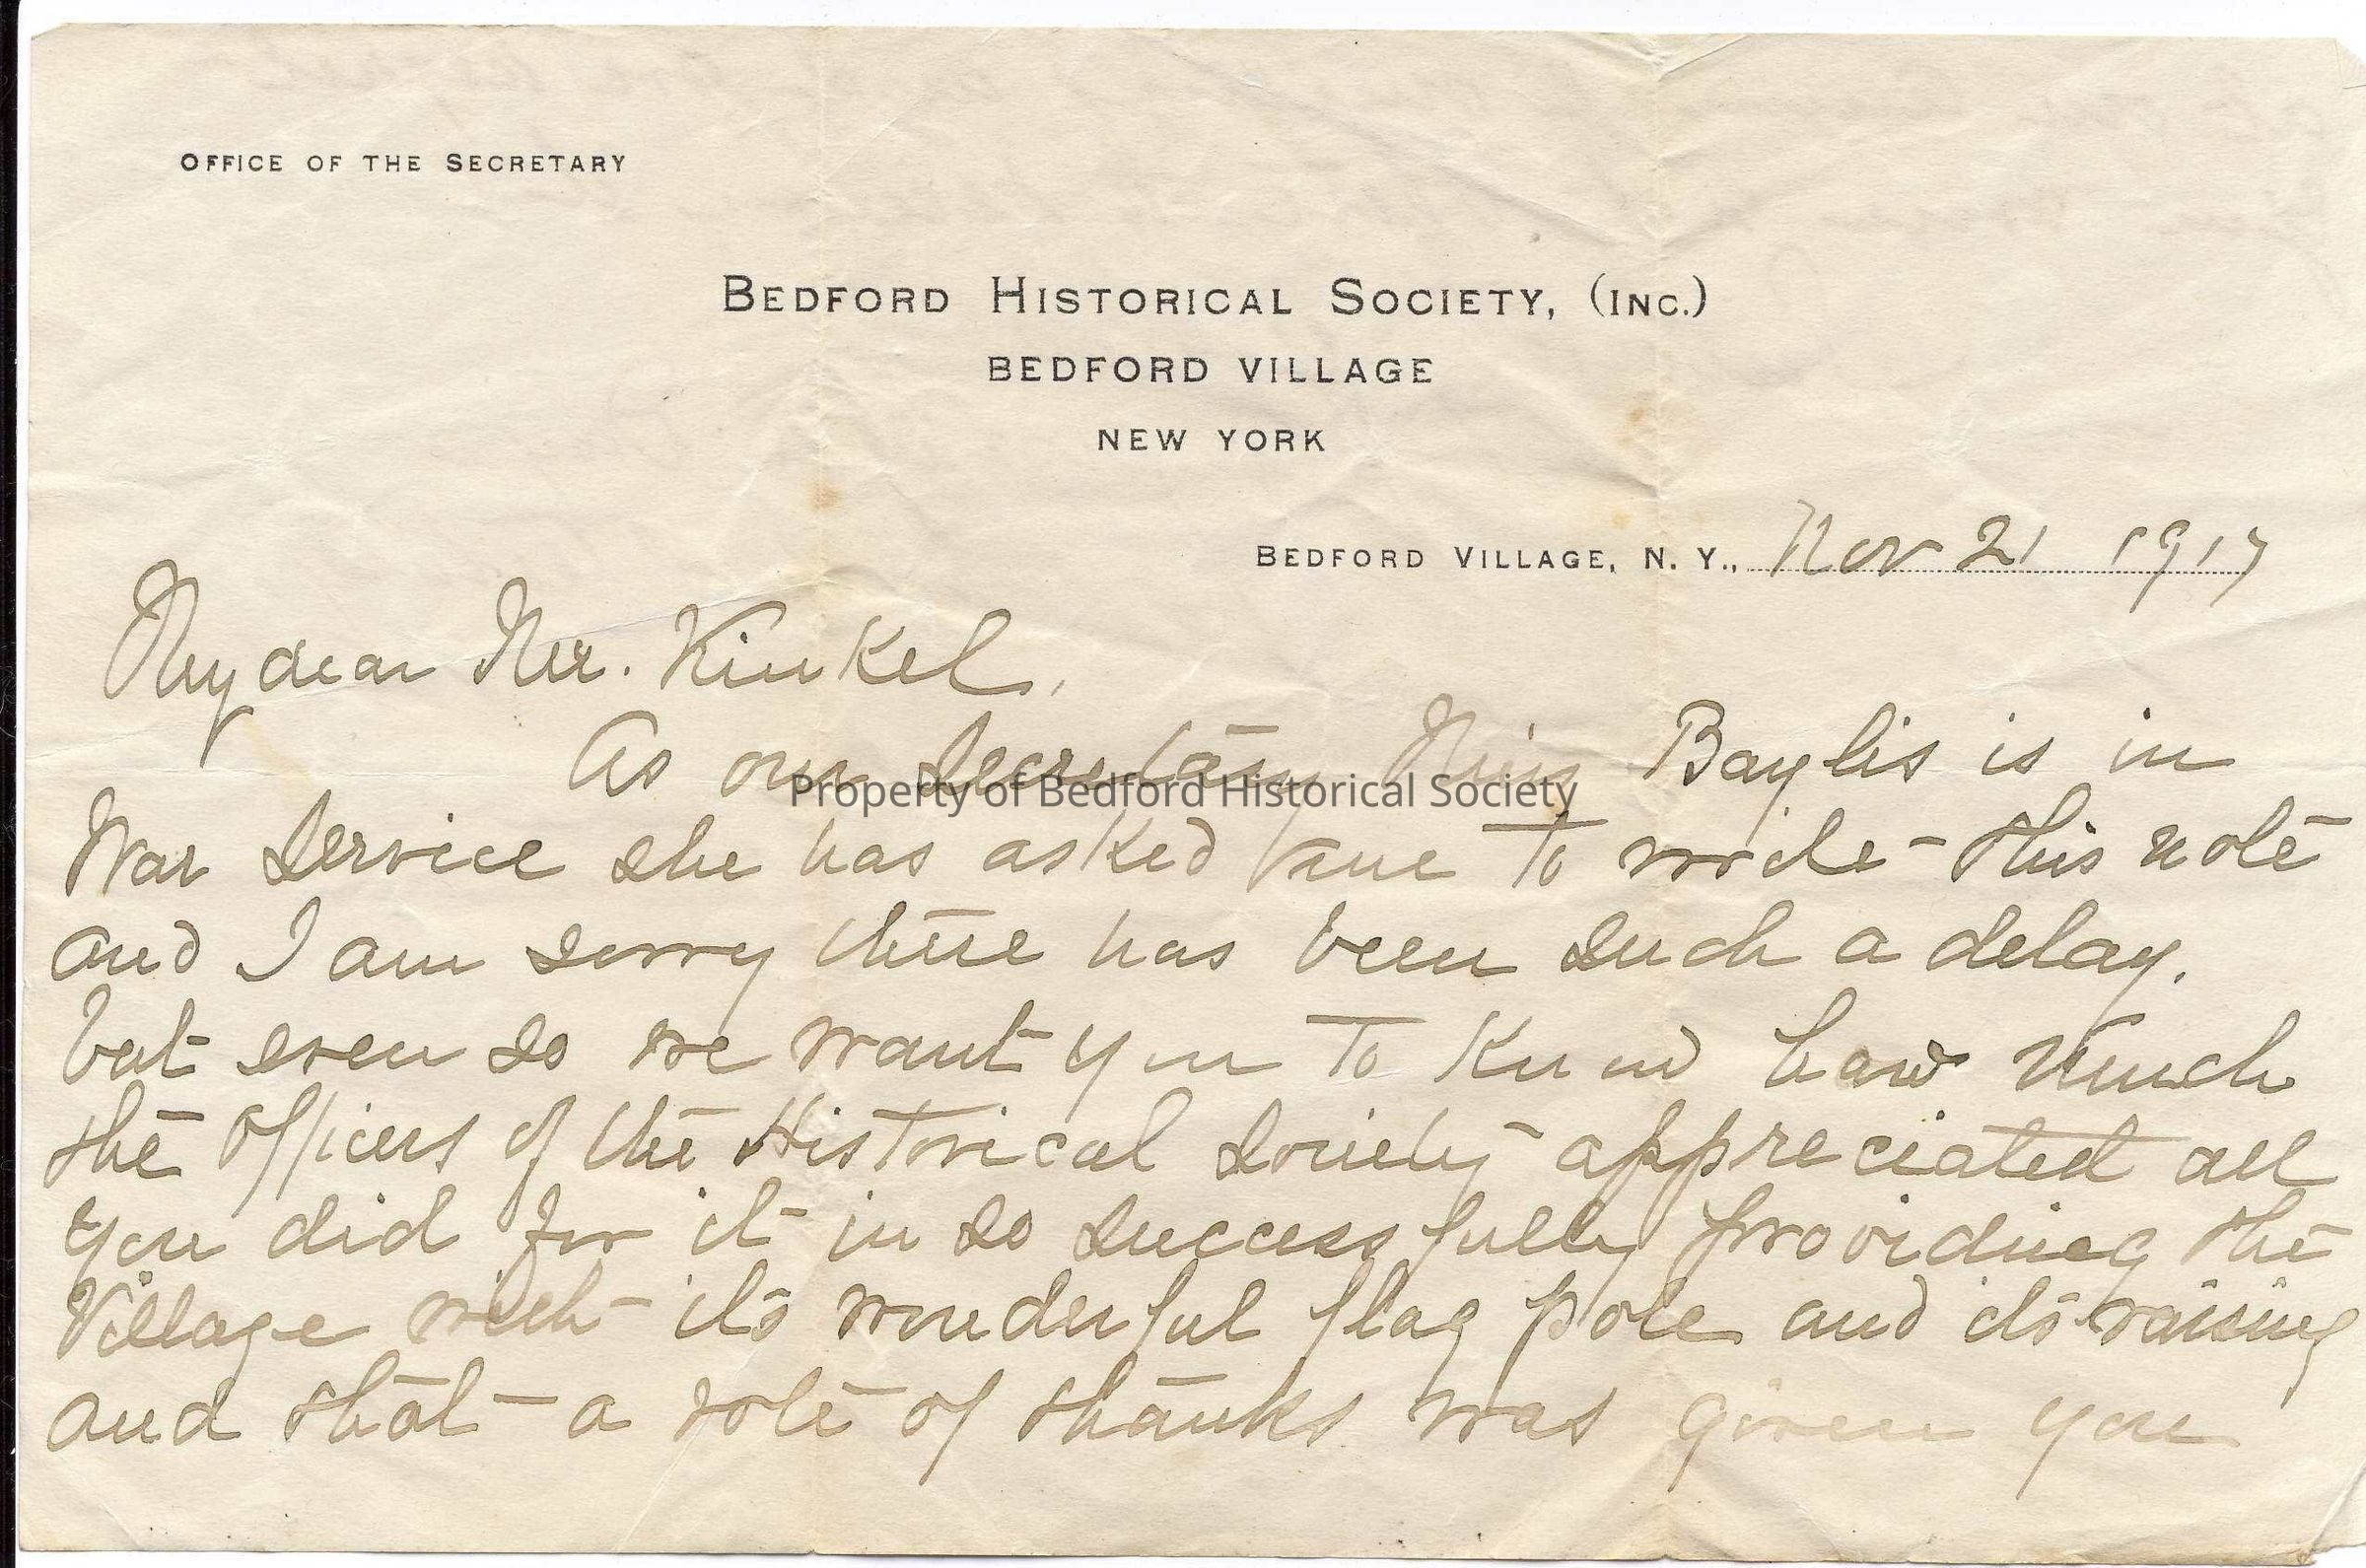 OFFICE OF THE SECRETARY
BEDFORD HISTORICAL SOCIETY, (INC.)
BEDFORD VILLAGE
NEW YORK
BEDFORD VILLAGE, N. Y., Nov 21 1917
My dear Mr. Kinkel,
As our Secretary Miss Baylis is in
Property of Bedford Historical Society
War Service she has asked me to write this note
and I am sorry there has been such a delay.
but even so we want you to know how much
the officers of the Historical Society appreciated all
you did for it in so successfully providing the
Village with its wonderful flag pole and its raising
and that a vote of thanks was given you